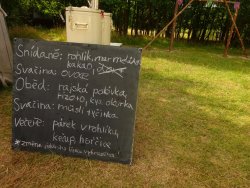 Snídaně: rohlík, marmeláda
kakao,
Svačina: ovoce
Oběd: rajská polévka
rizoto, kys. okurka
Svačina: müsli tyčinka
Večeře: párek v rohlíku,
kečup, hořčice
*změna jídelního lístku vyhrazena